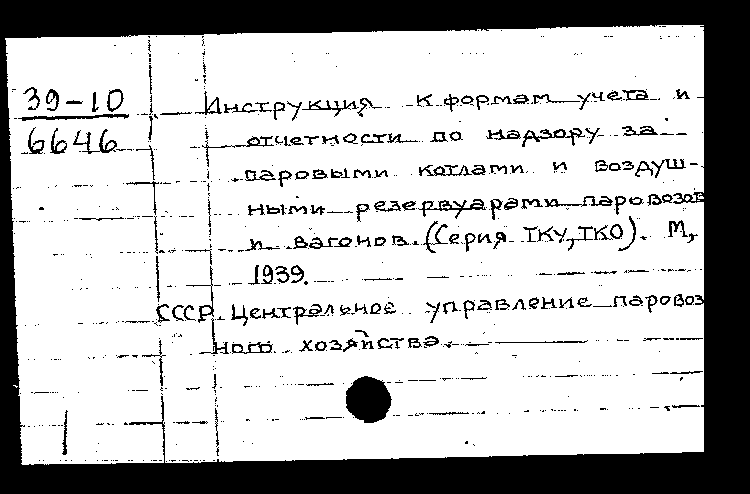 39-10
6646
Инструкция к формам учета и
отчетности по надзору за
паровыми котлами и воздуш-
ными резервуарами паровозов
и вагонов. (Серия ТКУ, ТКО). М,
1939.
СССР. Центральное управление паровоз
ного хозяйства.